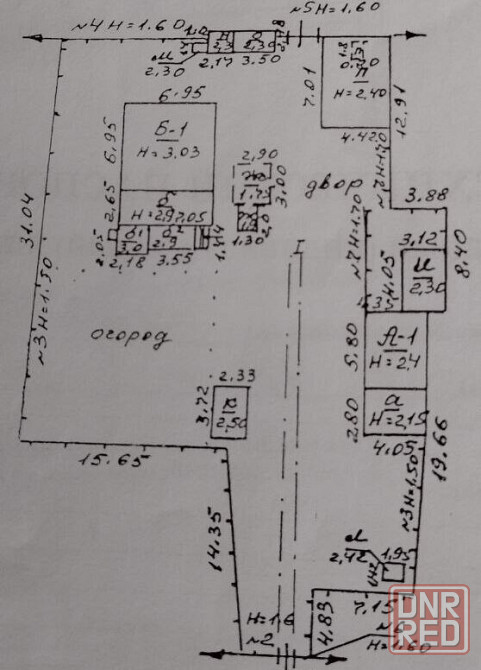 №4 Н=1.60
№5Н=1.60
1.0
Н
2,3
О
2,30
2.18
М
2,30
2,17
3.50
1.8
0.70
П
Н=2,40
7.01
12,91
4.42
№7Н=1.70
6.95
Б-1
Н=3,03
6,95
2.90
Ж
1,75
3.00
двор
3.88
2.65
б
Н=2,9
7,05
2.0
1,30
№7Н=1.70
3,12
8,40
2.05
б1
3,0
б2
2,9
1,44
2,18
3.55
I
И
2,30
4.05
31.04
№3Н=1.50
огород
5.80
А-1
Н=2,4
2,33
3,72
К
2,50
2.80
а
Н=2,15
4,05
19.66
15.65
№3Н=1.50
14.35
2,42
1,95
1,42
7,15
4.83
Н=1.6
№2
№6
Н=1.60
DNR
RED